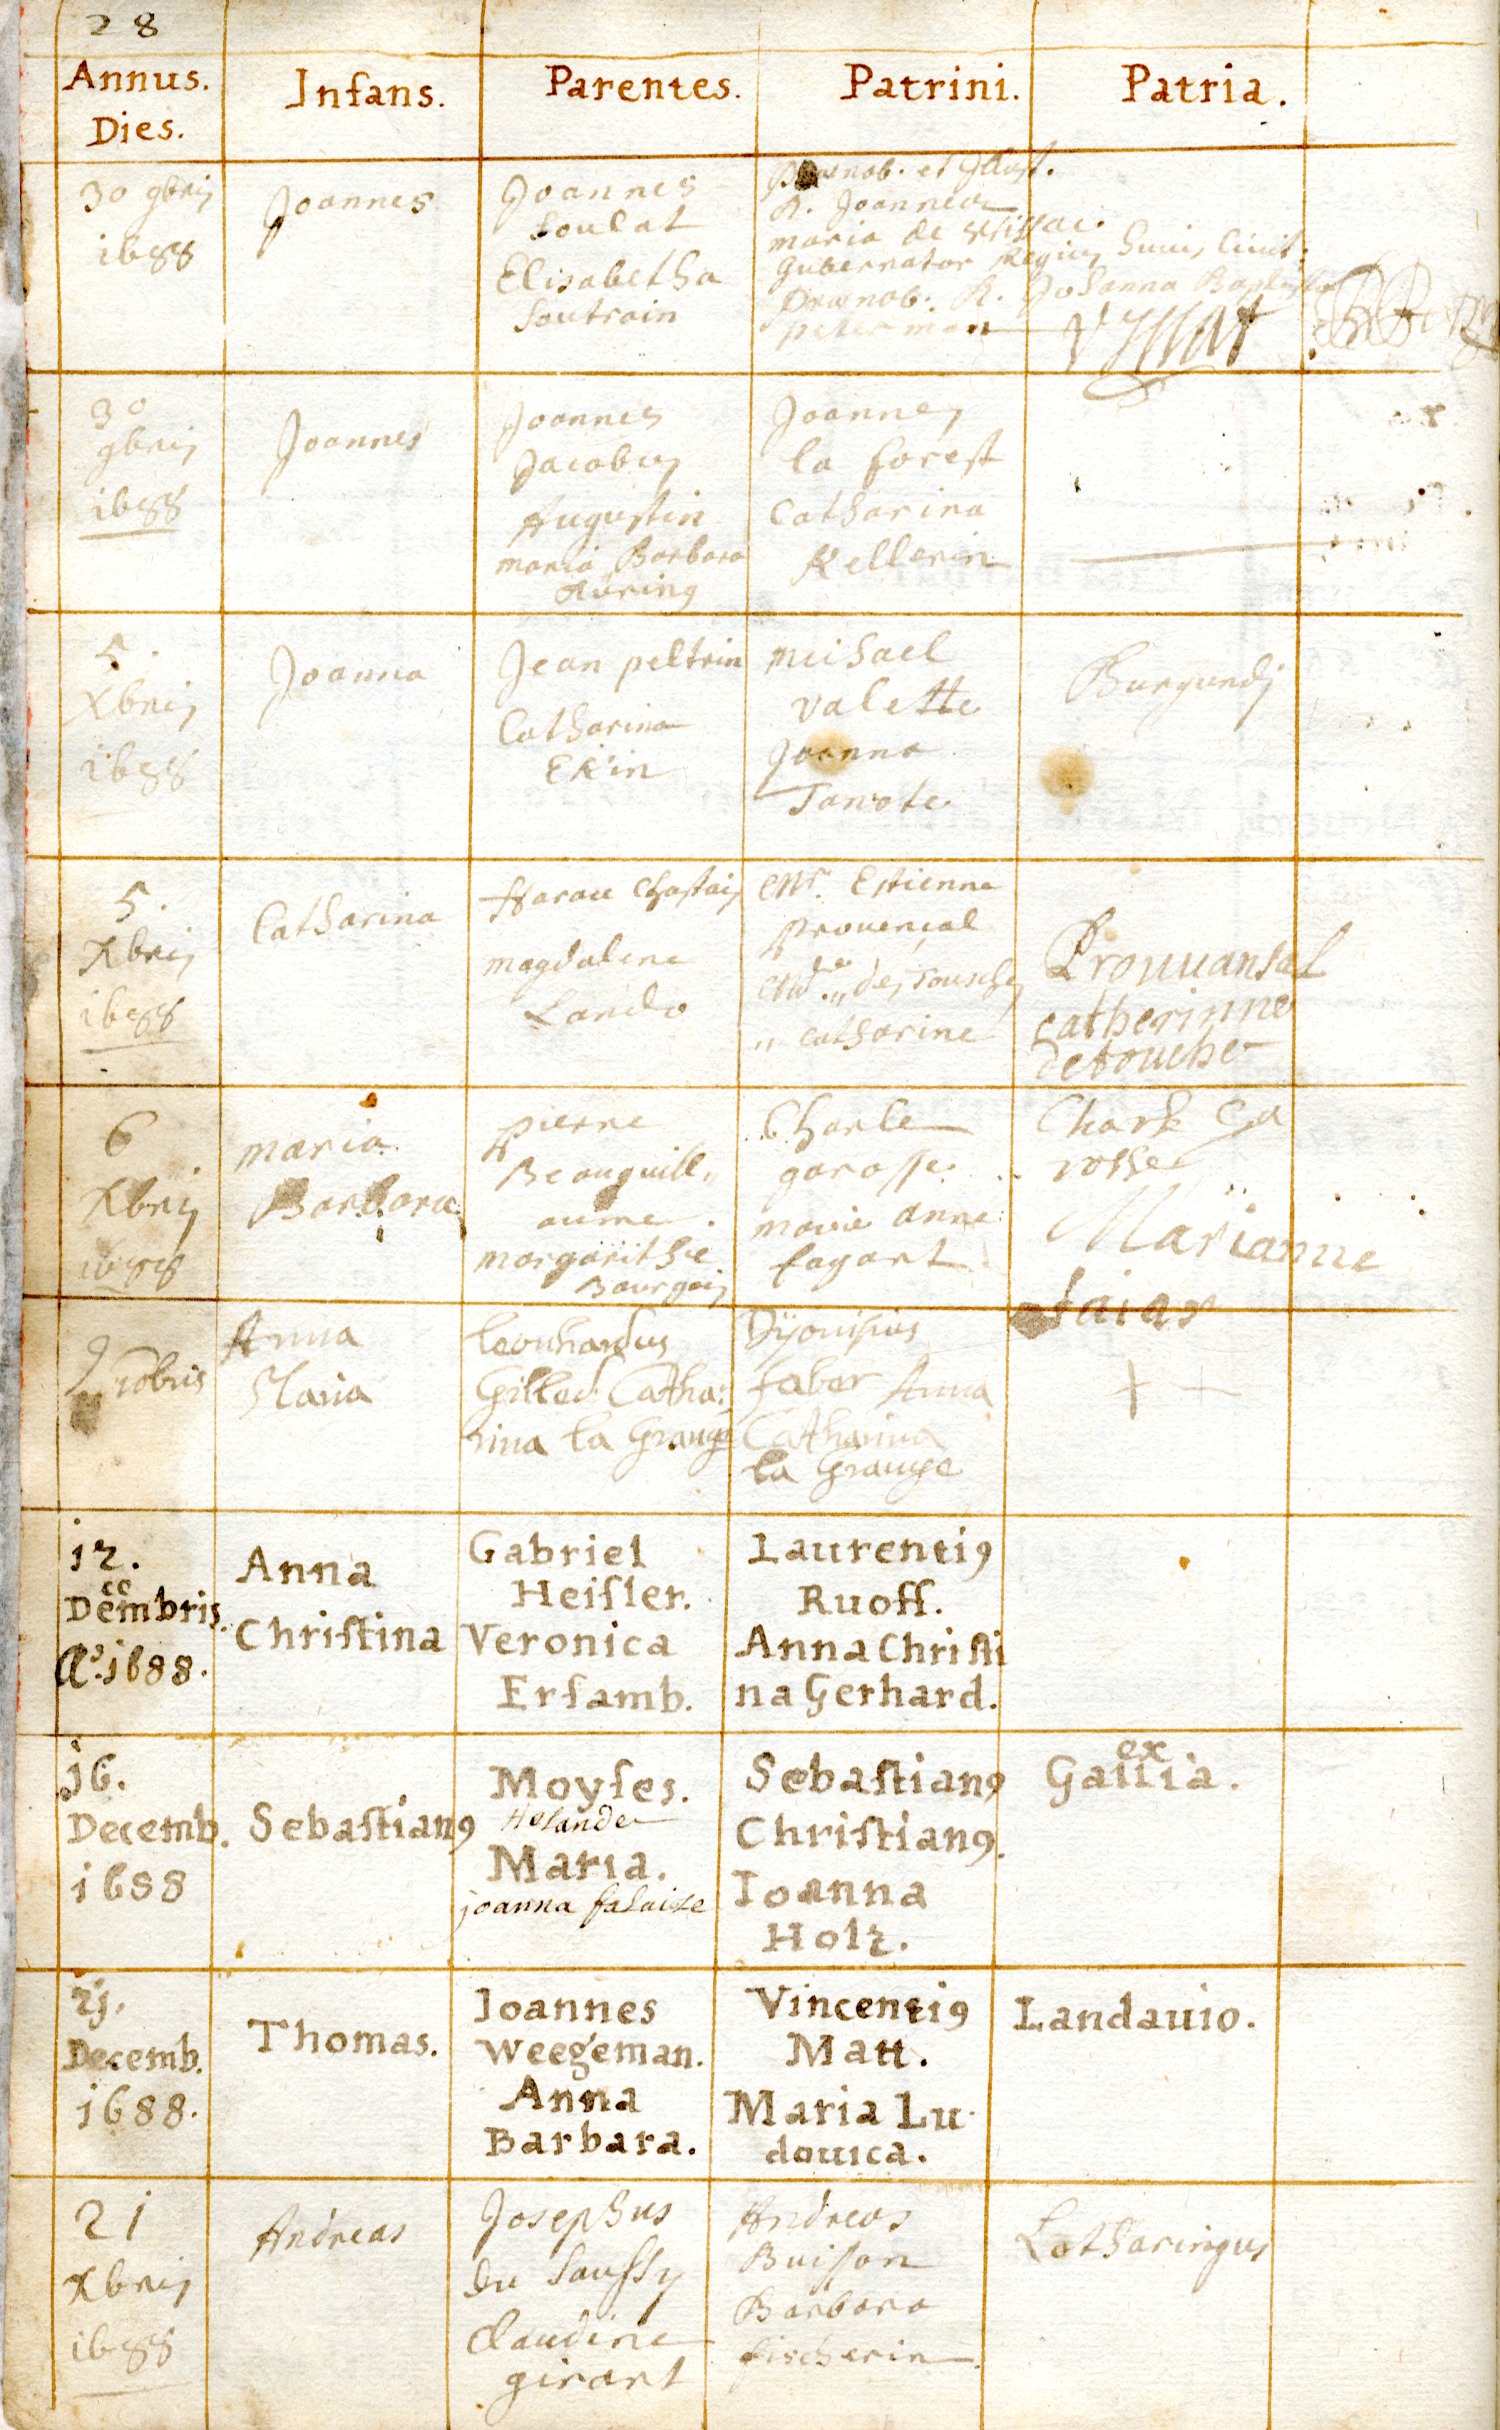 28
Annus.
Dies.
Infans.
Parentes.
Patrini.
Patria.
30 9bris
1688
Joannes
Joannes
Soulat
Elisabetha
Soutrain
Prænob. et Illust.
R. Joannes
maria de
Gubernator Regius huius Civit.
Prænob. R. Johanna Baptista
peterman
30
9bris
1688
Joannes
Joannes
Jacobus
Augustin
maria Barbara
Joannes
la forest
Catharina
Kellerin
5.
Xbris
1688
Joanna
Jean peltrin
Catharina
Ekin
michael
valette
Joanna
Janote
Burgundi
5.
Xbris
1688
Catharina
magdalene
Lando
Mr. Estienne
provençal
catharine
Prouuansal
catherinne
detouche
6
Xbris
1688
maria
Barbara
pierre
Beauguill„
aume.
margarithe
Bourgois
Charle
garosse.
marie anne
fagart
Charle Ga
rosse
Marianne
9 10bris
Anna
Maria
Leonhardus
Gilled Catha:
rina la Grange
Dijonisius
faber Anna
Catharina
la Grange
+ +
12.
Decembris.
Ao. 1688.
Anna
Chriſtina
Gabriel
Heiſler.
Veronica
Erſamb.
Laurenti9
Ruoff.
Anna Chriſti
na Gerhard.
16.
Decemb.
1688
Sebaſtian9
Moyſes.
Holander
Maria.
joanna falaise
Sebaſtian9
Chriſtian9.
Ioanna
Holz.
ex
Gallia.
21.
Decemb.
1688.
Thomas.
Ioannes
Weegeman.
Anna
Barbara.
Vincenti9
Matt.
Maria Lu
douica.
Landauio.
21
Xbris
1688
Andreas
Josephus
du Saussy
Claudine
girart
Andreas
Buisson
Barbara
fischerin.
Lotharingus